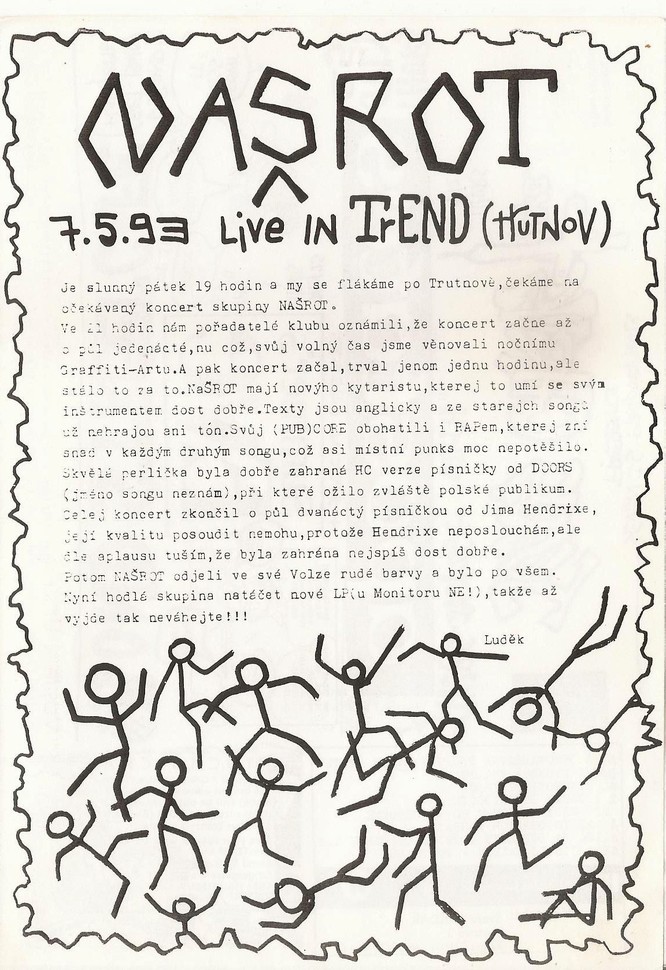 NAŠROT
7.5.93 Live IN TrEND (TRUTNOV)
Je slunný pátek 19 hodin a my se flákáme po Trutnově,čekáme na
očekávaný koncert skupiny NAŠROT.
Ve 21 hodin nám pořadatelé klubu oznámili,že koncert začne až
o půl jedenácté,nu což,svůj volný čas jsme věnovali nočnímu
Graffiti-Artu.A pak koncert začal,trval jenom jednu hodinu,ale
stálo to za to.NaŠROT mají novýho kytaristu,kterej to umí se svým
inštrumentem dost dobře.Texty jsou anglicky a ze starejch songů
už nehrajou ani tón.Svůj (PUB)CORE obohatili i RAPem,kterej zní
snad v každým druhým songu,což asi místní punks moc nepotěšilo.
Skvělá perlička byla dobře zahraná HC verze písničky od DOORS
(jméno songu neznám),při které ožilo zvláště polské publikum.
Celej koncert zkončil o půl dvanáctý písničkou od Jima Hendrixe,
její kvalitu posoudit nemohu,protože Hendrixe neposlouchám,ale
dle aplausu tuším,že byla zahrána nejspíš dost dobře.
Potom NAŠROT odjeli ve své Volze rudé barvy a bylo po všem.
Nyní hodlá skupina natáčet nové LP(u Monitoru NE!),takže až
vyjde tak neváhejte!!!
Luděk